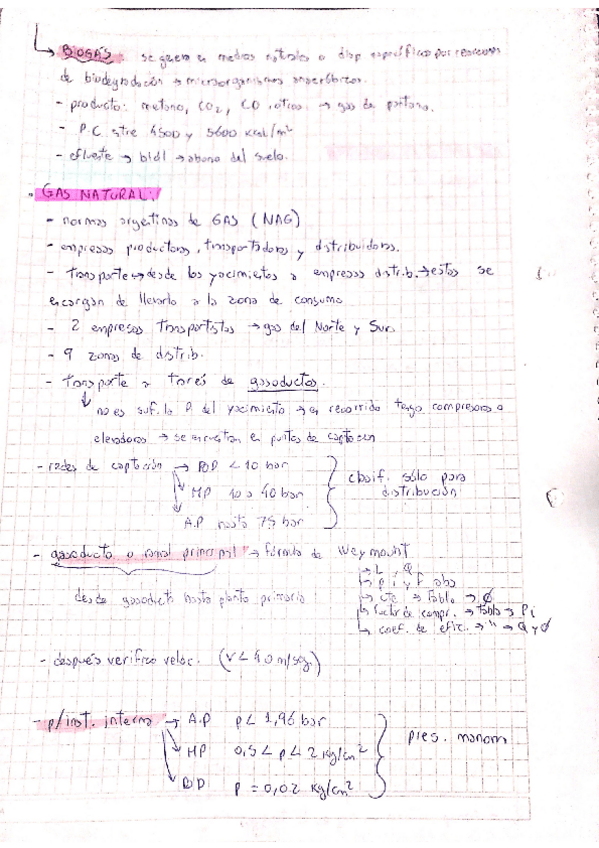 ↳ BIOGÁS: se genera en medios naturales o disp específicos por reacciones
de biodegradación → microorganismos anaeróbicos.
- producto: metano, CO2, CO, otros. → gas de pantano.
- P.C. etre 4500 y 5600 kcal/m²
- efluente → bidl → abono del suelo.
. GAS NATURAL:
- normas argentinas de GAS (NAG)
- empresas productoras, transportadoras y distribuidoras.
- transporte → desde los yacimientos a empresas distrib. → estas se
encargan de llevarlo a la zona de consumo
- 2 empresas transportistas → gas del Norte y Sur.
- 9 zonas de distrib.
- transporte a través de gasoductos.
↓ no es suf. la P. del yacimiento → en recorrido tengo compresores o
elevadores → se encuentran en puntos de captación
- redes de captación → BP < 10 bar
↘ MP 10 a 40 bar
↘ A.P hasta 75 bar
} clasif. sólo para
distribución
- gasoducto o ramal principal → fórmula de Weymount
desde gasoducto hasta planta primaria
↳ L, Q
↳ P i y f abs
↳ cte → tabla → Ø
↳ factor de compr. → tabla → Pi
↳ coef. de efic. → " → Q y Ø
- después verifico veloc. (v < 40 m/seg.)
- p/inst. interna → A.P p < 1,96 bar
↘ MP 0,5 < p < 2 Kg/cm²
↘ BP P = 0,02 Kg/cm²
} pres. manom